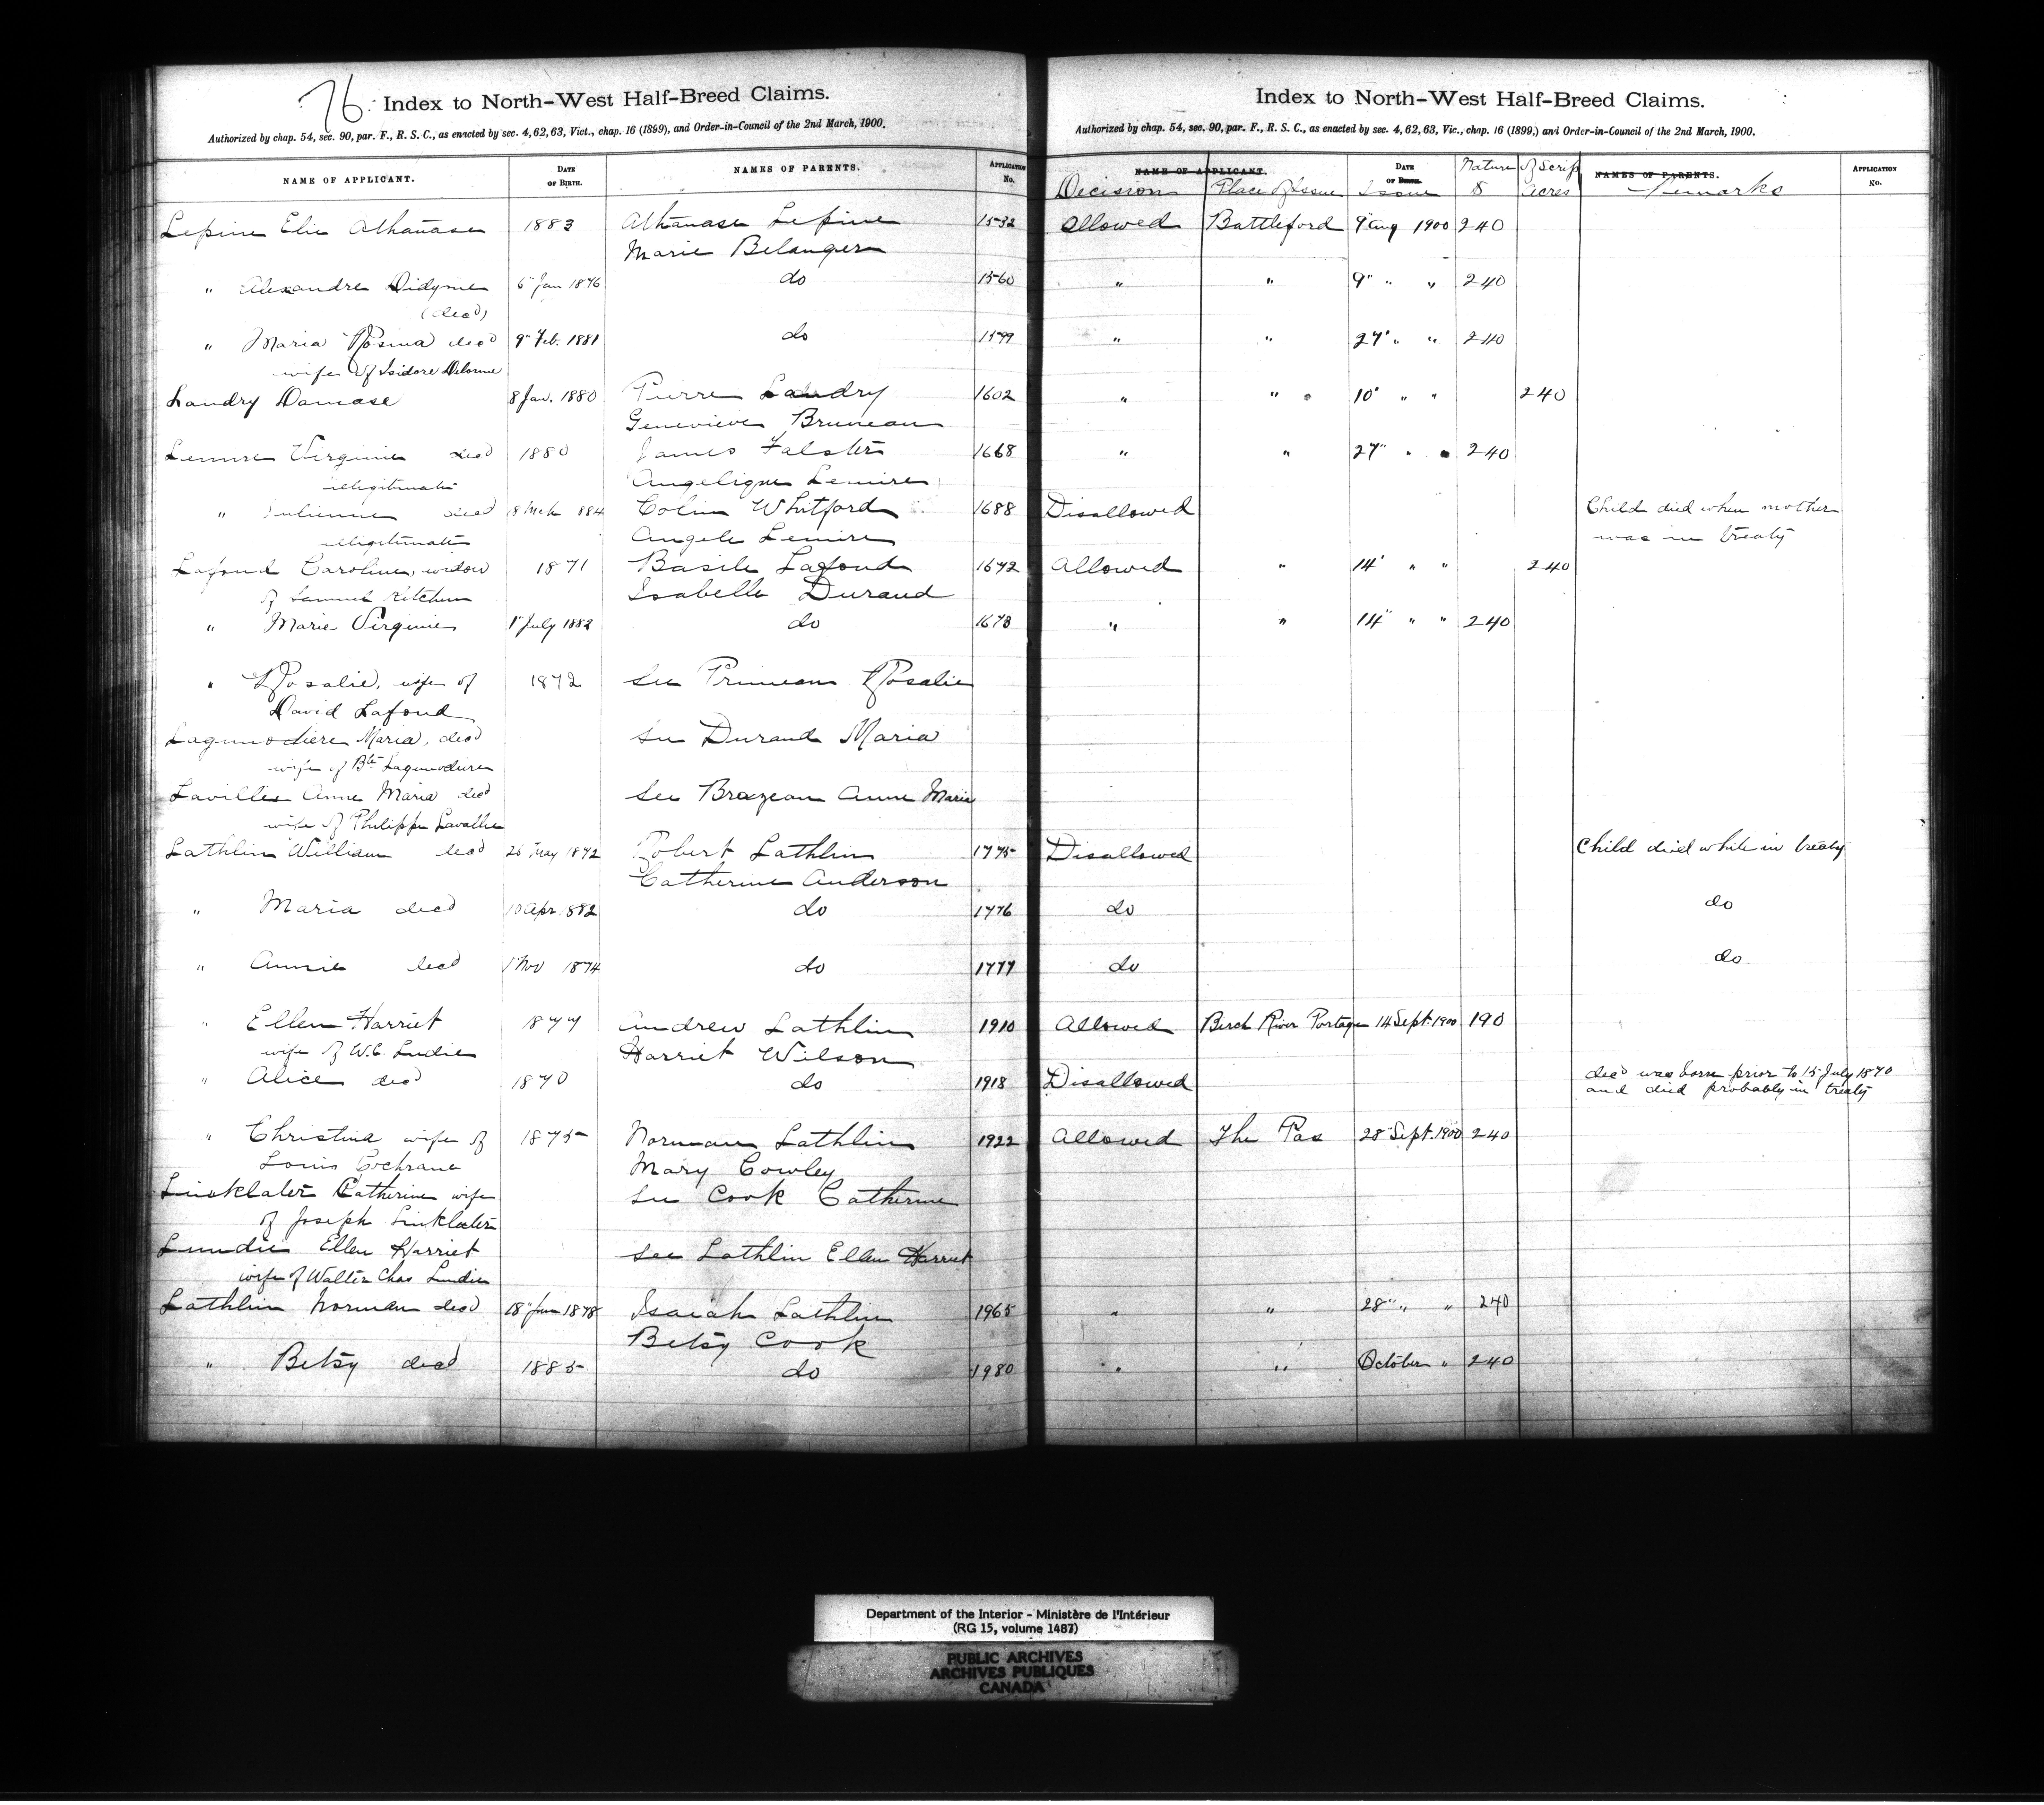 76.
Index to North-West Half-Breed Claims.
Authorized by chap. 54, sec. 90, par. F., R. S. C., as enacted by sec. 4, 62, 63, Vict., chap. 16 (1899), and Order-in-Council of the 2nd March, 1900.
NAME OF APPLICANT. DATE OF BIRTH. NAMES OF PARENTS. APPLICATION No.
Lepine Elie Athanase 1883 Athanase Lepine 1532
Marie Belanger
" Alexandre Didyme 6" Jan 1876 do 1560
(decd)
" Maria Rosina decd 9" Feb. 1881 do 1599
wife of Isidore Delorme
Landry Damase 8 Jan. 1880 Pierre Landry 1602
Genevieve Bruneau
Lemire Virginie decd 1880 James Falster 1668
illegitimate Angelique Lemire
" Julienne decd 8 Mch 1884 Colin Whitford 1688
illegitimate Angele Lemire
Lafond Caroline, widow 1871 Basile Lafond 1672
of Samuel Ketchum Isabelle Durand
" Marie Virginie 1" July 1882 do 1673
" Rosalie, wife of 1872 See Primeau Rosalie
David Lafond
Lagimodiere Maria, decd See Durand Maria
wife of Bte Lagimodiere
Lavillee Anne Maria decd See Brazeau Anne Maria
wife of Philippe Lavallee
Lathlin William decd 26 May 1872 Robert Lathlin 1775
Catherine Anderson
" Maria decd 10 Apr. 882 do 1776
" Annie decd 1" Nov 1874 do 1777
" Ellen Harriet 1877 Andrew Lathlin 1910
wife of W.C. Lundie Harriet Wilson
" Alice decd 1870 do 1918
" Christina wife of 1875 Norman Lathlin 1922
Louis Cochrane Mary Cowley
Linklater Catherine wife See Cook Catherine
of Joseph Linklater
Lundie Ellen Harriet See Lathlin Ellen Harriet
wife of Walter Chas Lundie
Lathlin Norman decd 18" Jan 1878 Isaiah Lathlin 1965
Betsy Cook
" Betsy decd 1885 do 1980
Index to North-West Half-Breed Claims.
Authorized by chap. 54, sec. 90, par. F., R. S. C., as enacted by sec. 4, 62, 63, Vic., chap. 16 (1899,) and Order-in-Council of the 2nd March, 1900.
NAME OF APPLICANT. DATE OF BIRTH. Nature of Scrip NAMES OF PARENTS. APPLICATION No.
Decision Place of Issue Issue $ acres Remarks
Allowed Battleford 9" Aug 1900 240
" " 9" " " 240
" " 27" " " 240
" " 10" " " 240
" " 27" " " 240
Disallowed Child died when mother
was in treaty
Allowed " 14" " " 240
" " 14" " " 240
Disallowed Child died while in treaty
do do
do do
Allowed Birch River Portage 14 Sept. 1900 190
Disallowed decd was born prior to 15 July 1870
and died probably in treaty
Allowed The Pas 28" Sept. 1900 240
" " 28" " " 240
" " October " 240
Department of the Interior - Ministère de l'Intérieur
(RG 15, volume 1487)
PUBLIC ARCHIVES
ARCHIVES PUBLIQUES
CANADA